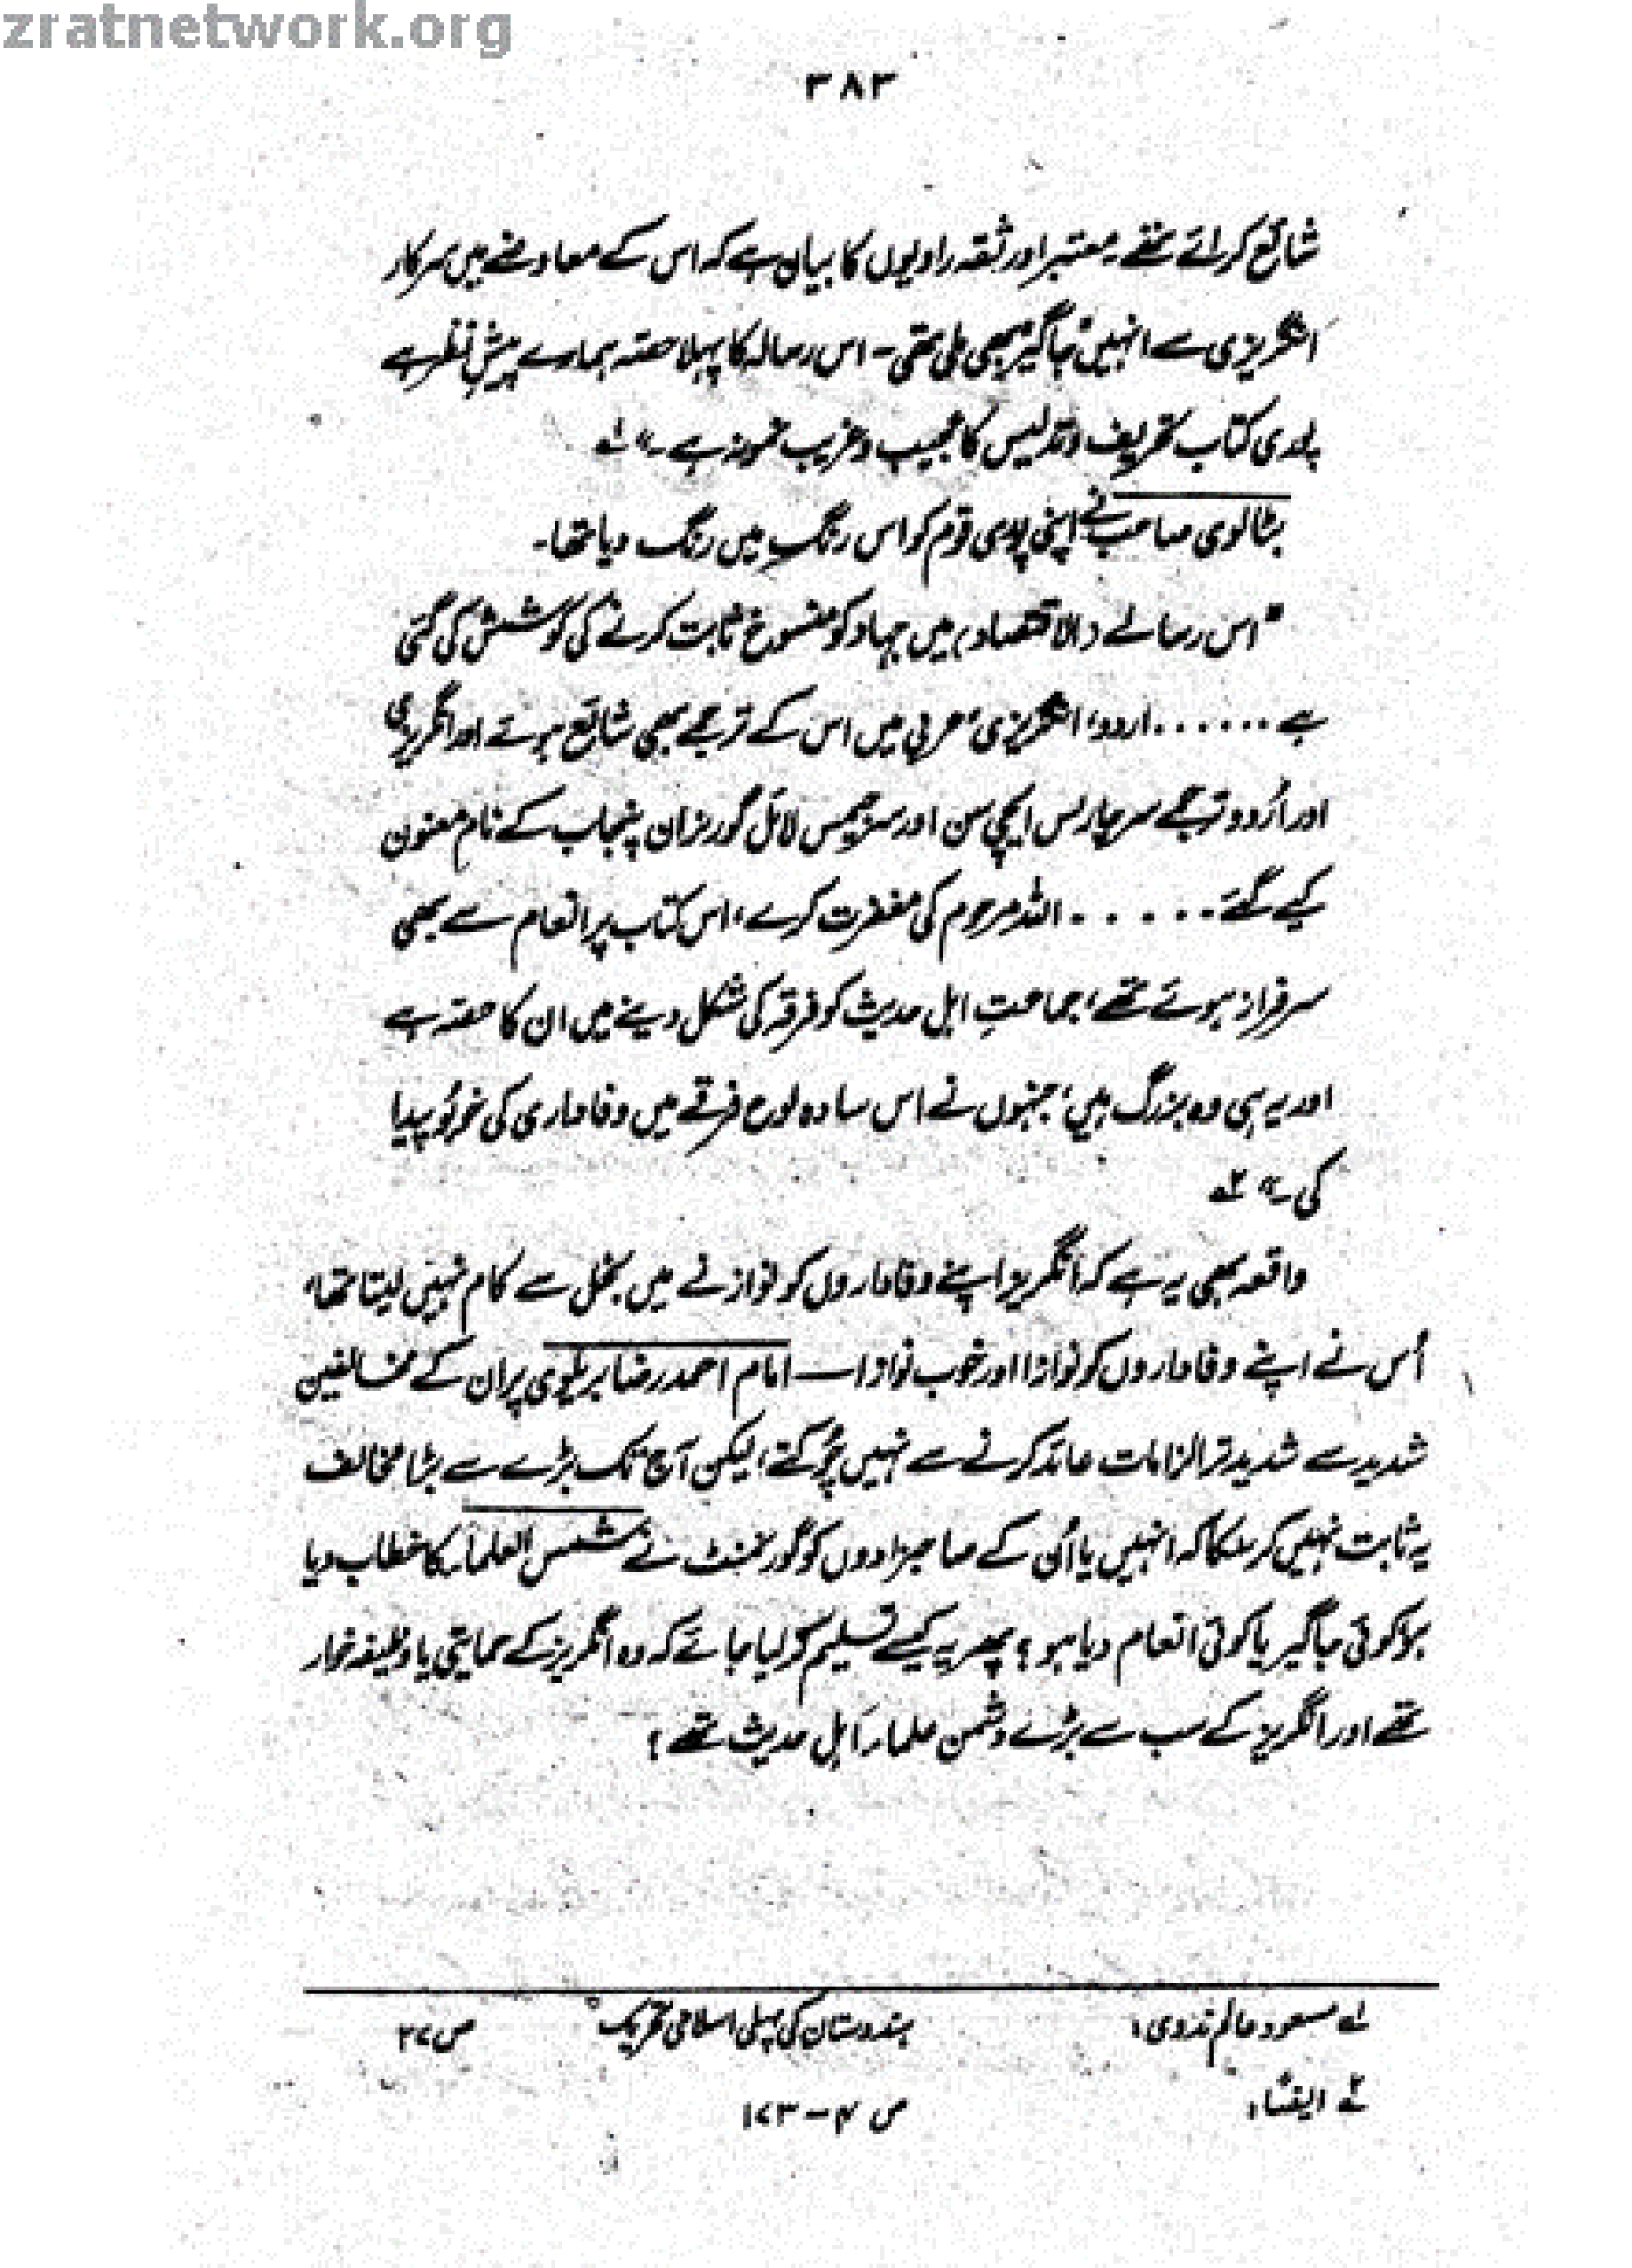 zratnetwork.org
۳۸۳
شائع کرائے تھے۔ معتبر اور ثقہ راویوں کا بیان ہے کہ اس کے معاوضے میں سرکار
انگریزی سے انہیں جاگیر بھی ملی تھی۔ اس رسالہ کا پہلا حصّہ ہمارے پیشِ نظر ہے
پوری کتاب تحریف و تدلیس کا عجیب و غریب نمونہ ہے۔" لہ
بٹالوی صاحب نے اپنی پوری قوم کو اس رنگ میں رنگ دیا تھا۔
"اس رسالے (الاقتصاد) میں جہاد کو منسوخ ثابت کرنے کی کوشش کی گئی
ہے ...... اردو، انگریزی، عربی میں اس کے ترجمے بھی شائع ہوئے اور انگریزی
اور اُردو ترجمے سر چارلس ایچی سن اور سر جیمس لائل گورنران پنجاب کے نام معنون
کیے گئے ..... اللہ مرحوم کی مغفرت کرے، اس کتاب پر انعام سے بھی
سرفراز ہوئے تھے، جماعتِ اہل حدیث کو فرقہ کی شکل دینے میں ان کا حصّہ ہے
اور یہ ہی وہ بزرگ ہیں، جنہوں نے اس سادہ لوح فرقے میں وفاداری کی خو بُو پیدا
کی۔" ۲ہ
واقعہ بھی یہ ہے کہ انگریز اپنے وفاداروں کو نوازنے میں بخل سے کام نہیں لیتا تھا،
اُس نے اپنے وفاداروں کو نوازا اور خوب نوازا — امام احمد رضا بریلوی پر ان کے مخالفین
شدید سے شدید تر الزامات عائد کرنے سے نہیں چُوکتے، لیکن آج تک بڑے سے بڑا مخالف
یہ ثابت نہیں کر سکا کہ انہیں یا اُن کے صاحبزادوں کو گورنمنٹ نے شمس العلماء کا خطاب دیا
ہو، کوئی جاگیر یا کوئی انعام دیا ہو؟ پھر یہ کیسے تسلیم کر لیا جائے کہ وہ انگریز کے حمایتی یا وظیفہ خوار
تھے اور انگریز کے سب سے بڑے دشمن علماء اہل حدیث تھے؟
لہ مسعود عالم ندوی: ہندوستان کی پہلی اسلامی تحریک ص ۲۷
۲ہ ایضًا: ص ۴-۱۷۳